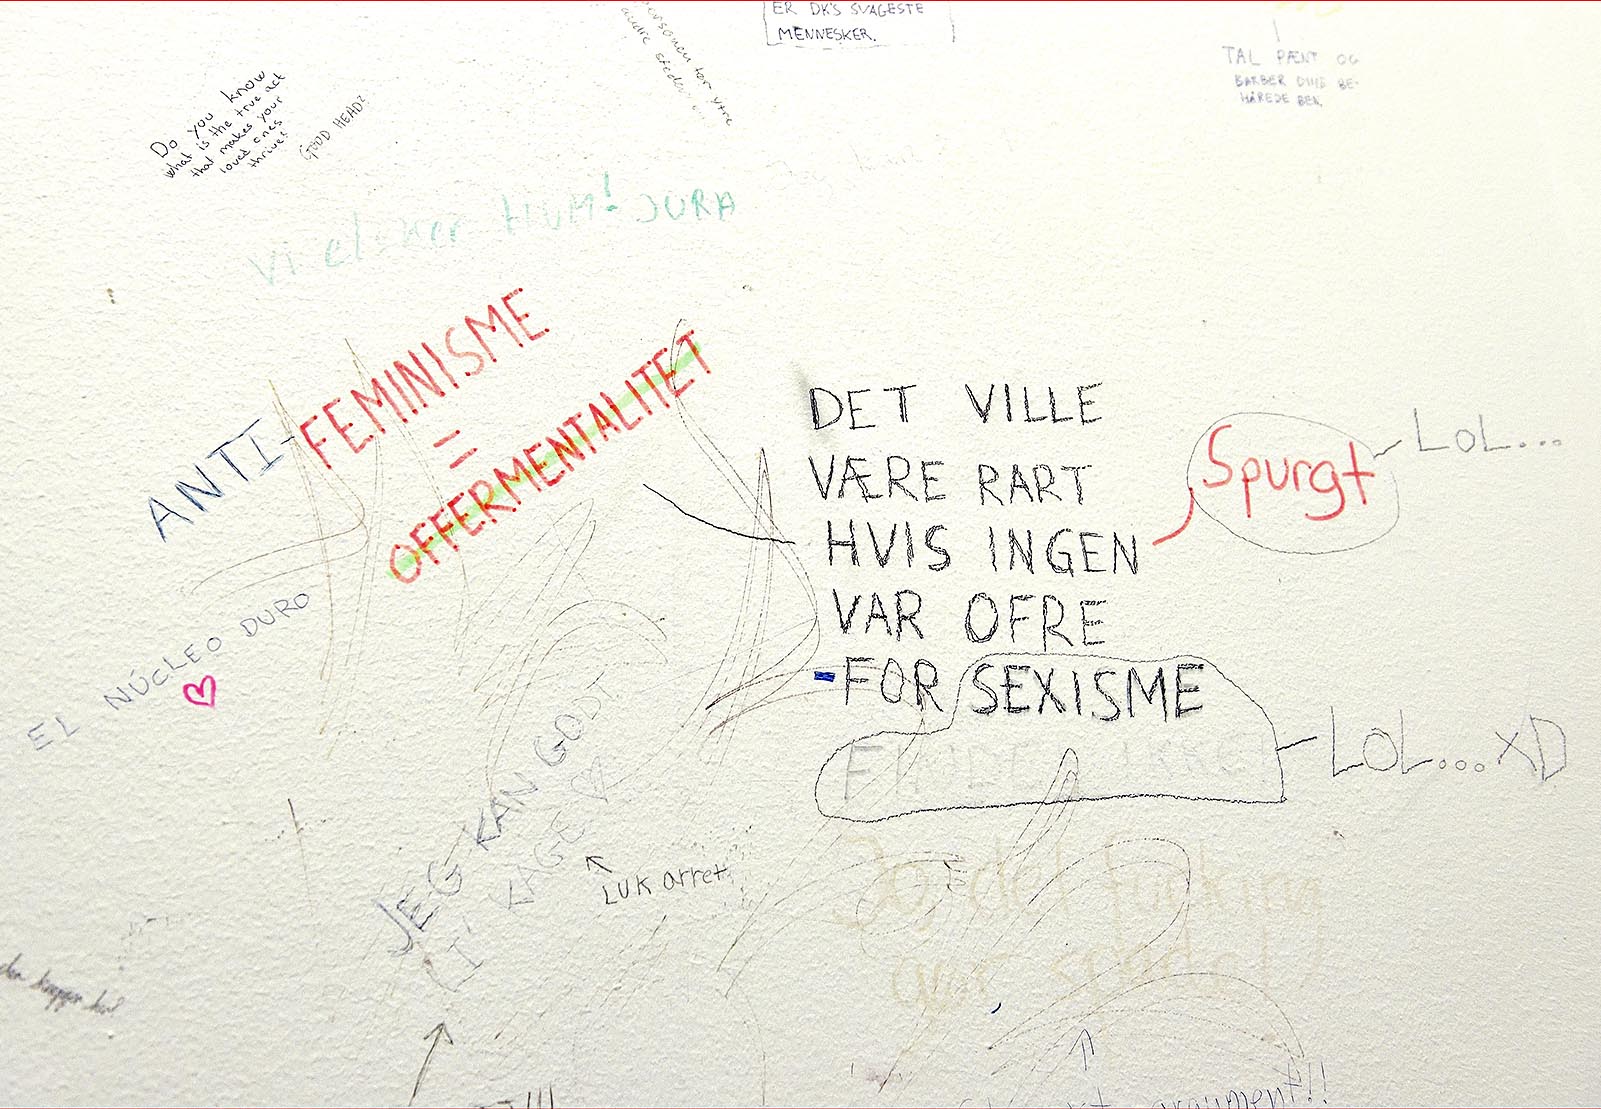 ER DK'S SVAGESTE
MENNESKER.
TAL PÆNT OG
BARBER DINE BE-
HÅREDE BEN.
Do you know
what is the true act
that makes your
loved ones
thrive?
GOOD HEAD?
Vi elsker HUM! JURA
ANTI-FEMINISME
=
OFFERMENTALITET
DET VILLE
VÆRE RART
HVIS INGEN
VAR OFRE
-FOR SEXISME
Spurgt
LOL...
LOL...XD
EL NÚCLEO DURO
JEG KAN GODT
LI' KAGE
LUK arret
Jo, det fucking
gør
argument!!!
!!!